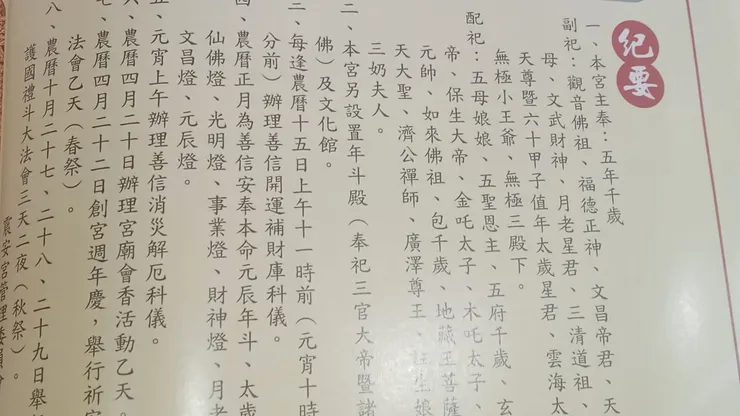 紀要
一、本宮主奉：五年千歲
副祀：觀音佛祖、福德正神、文昌帝君、天
母、文武財神、月老星君、三清道祖、
天尊暨六十甲子值年太歲星君、雲海太
無極小王爺、無極三殿下。
配祀：五母娘娘、五聖恩主、五府千歲、玄
帝、保生大帝、金吒太子、木吒太子、
元帥、如來佛祖、包千歲、地藏王菩薩
天大聖、濟公禪師、廣澤尊王、註生娘
三奶夫人。
二、本宮另設置年斗殿（奉祀三官大帝暨諸
佛）及文化館。
三、每逢農曆十五日上午十一時前（元宵十時
分前）辦理善信開運補財庫科儀。
四、農曆正月為善信安奉本命元辰年斗、太歲
仙佛燈、光明燈、事業燈、財神燈、月老
文昌燈、元辰燈。
五、元宵上午辦理善信消災解厄科儀。
六、農曆四月二十日辦理宮廟會香活動乙天。
七、農曆四月二十二日創宮週年慶，舉行祈
法會乙天（春祭）。
八、農曆十月二十七、二十八、二十九日舉
護國禮斗大法會三天二夜（秋祭）。
震安宮管理委員會